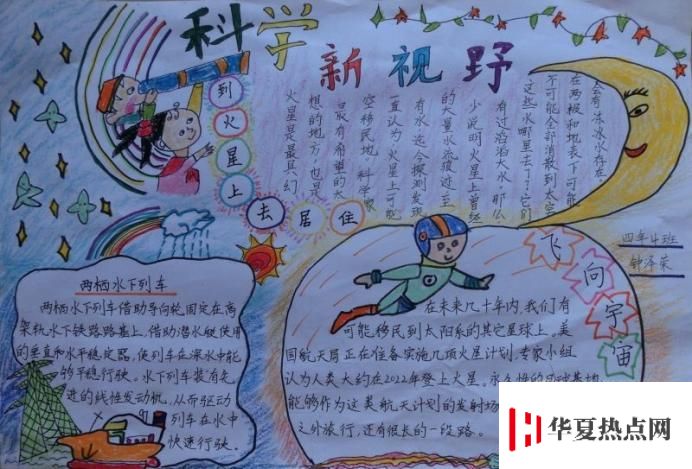 科学
新视野
到火星上
去居住
会有冻冰水存在。
在两极和地表下可能
不可能全部消散到太空,
这些水哪里去了?它们
有过滔滔大水。那么,
少说明火星上曾经
的大量水流痕迹,至
有水,迄今探测发现
直认为,火星上可能
空移民地。科学家
最有希望的太
想的地方,也是
火星是最具幻
四年4班
钟泽荣
飞向宇宙
两栖水下列车
两栖水下列车借助导向轮固定在高
架轨水下铁路路基上,借助潜水艇使用
的垂直和水平稳定器,使列车在深水中能
够平稳行驶。水下列车装有先
进的线性发动机,从而驱动
列车在水中
快速行驶。
在未来几十年内,我们有
可能移民到太阳系的其它星球上。美
国航天局正在准备实施几项火星计划,专家小组
认为人类大约在2022年登上火星。永久性的月球基地
能够作为这类航天计划的发射场
之外旅行,还有很长的一段路。
华夏热点网